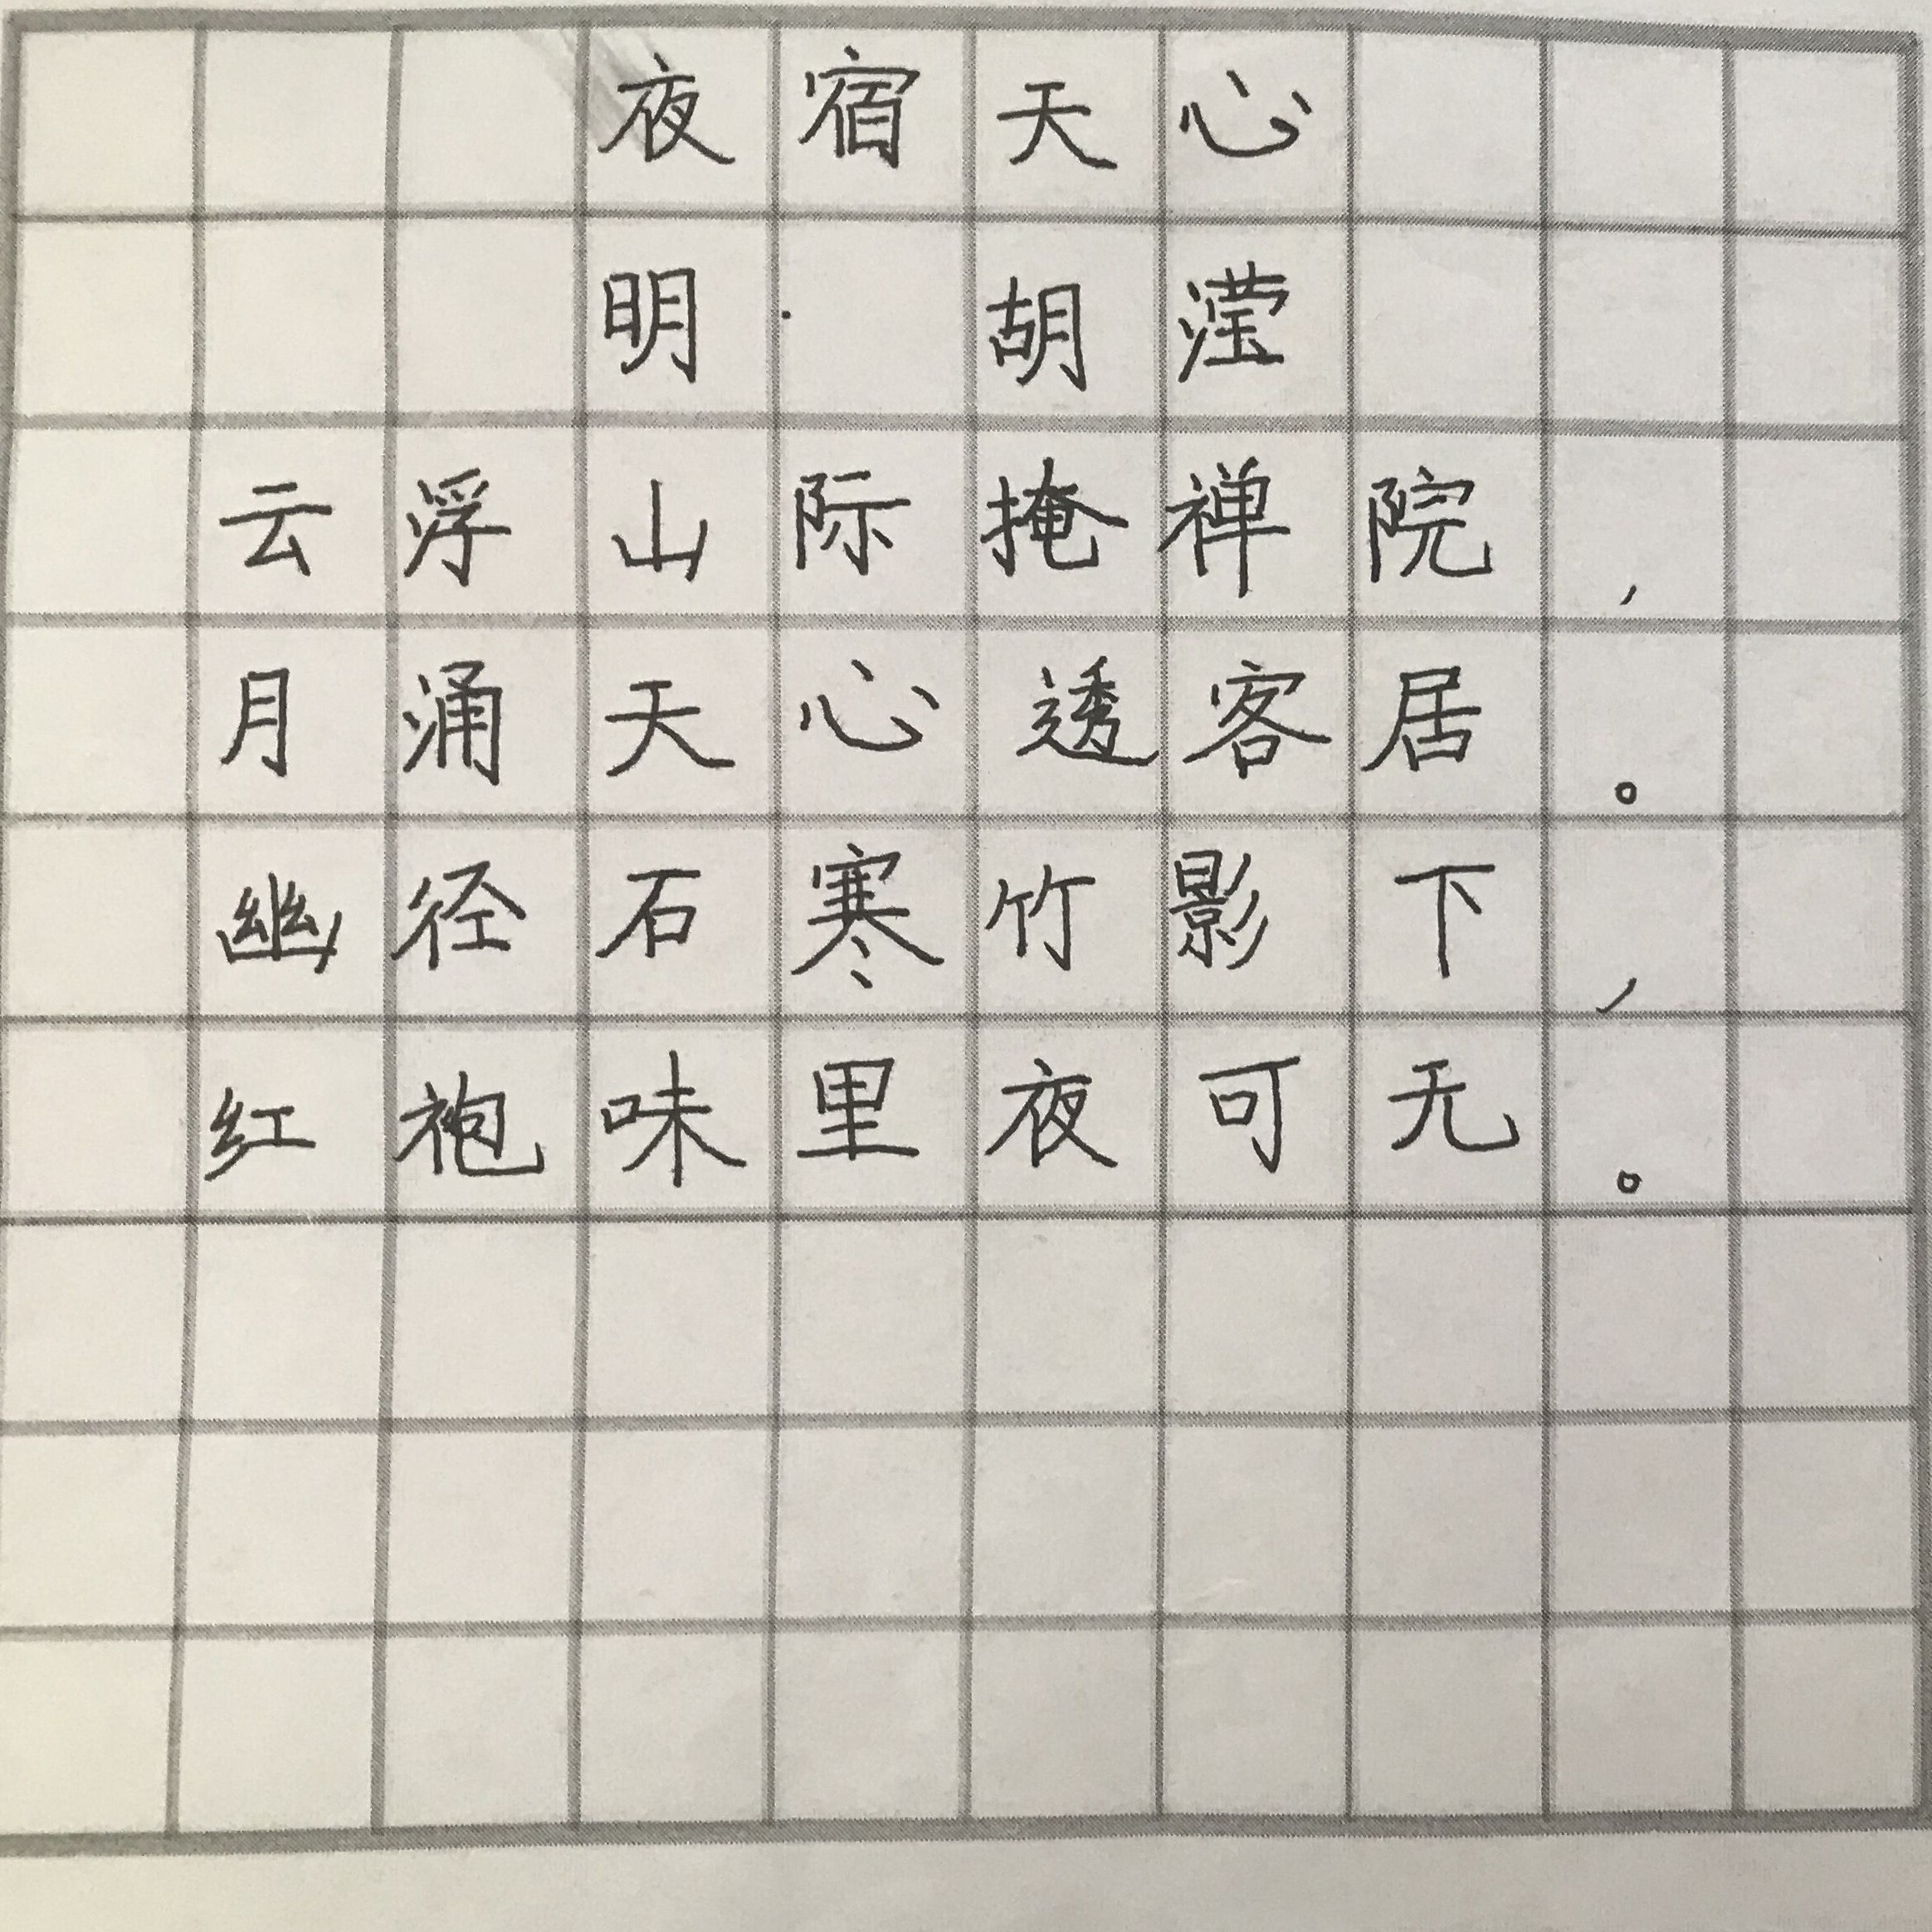 夜宿天心
明·胡滢
云浮山际掩禅院，
月涌天心透客居。
幽径石寒竹影下，
红袍味里夜可无。